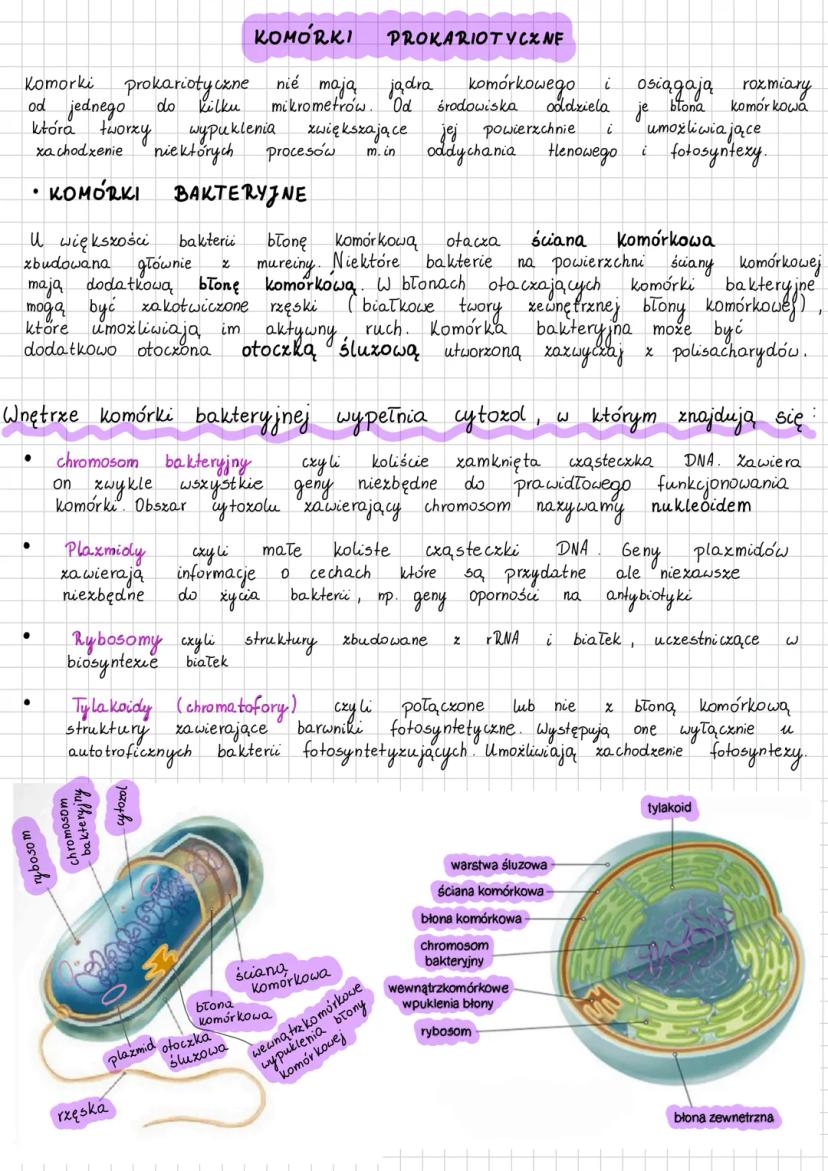 KOMÓRKI PROKARIOTYCZNE
Komorki prokariotyczne nie mają jądra komórkowego i osiągają rozmiary
od jednego do kilku mikrometrów. Od środowiska oddziela je błona komórkowa
która tworzy wypuklenia zwiększające jej powierzchnie i umożliwiające
zachodzenie niektórych procesów m.in oddychania tlenowego i fotosyntezy.
• KOMÓRKI BAKTERYJNE
U większości bakterii błonę komórkową otacza ściana komórkowa
zbudowana głównie z mureiny. Niektóre bakterie na powierzchni ściany komórkowej
mają dodatkową błonę komórkową. W błonach otaczających komórki bakteryjne
mogą być zakotwiczone rzęski (białkowe twory zewnętrznej błony komórkowej),
które umożliwiają im aktywny ruch. Komórka bakteryjna może być
dodatkowo otoczona otoczką śluzową utworzoną zazwyczaj z polisacharydów.
Wnętrze komórki bakteryjnej wypełnia cytozol, w którym znajdują się:
• chromosom bakteryjny czyli koliście zamknięta cząsteczka DNA. Zawiera
on zwykle wszystkie geny niezbędne do prawidłowego funkcjonowania
komórki. Obszar cytozolu zawierający chromosom nazywamy nukleoidem
• Plazmidy czyli małe koliste cząsteczki DNA. Geny plazmidów
zawierają informacje o cechach które są przydatne ale niezawsze
niezbędne do życia bakterii, np. geny oporności na antybiotyki
• Rybosomy czyli struktury zbudowane z rRNA i białek, uczestniczące w
biosyntezie białek
• Tylakoidy (chromatofory) czyli połączone lub nie z błoną komórkową
struktury zawierające barwniki fotosyntetyczne. Występują one wyłącznie u
autotroficznych bakterii fotosyntetyzujących. Umożliwiają zachodzenie fotosyntezy.
rybosom
chromosom
bakteryjny
cytozol
ściana
komórkowa
błona
komórkowa
wewnątrzkomórkowe
wypuklenia błony
komórkowej
plazmid
otoczka
śluzowa
rzęska
tylakoid
warstwa śluzowa
ściana komórkowa
błona komórkowa
chromosom
bakteryjny
wewnątrzkomórkowe
wpuklenia błony
rybosom
błona zewnetrzna